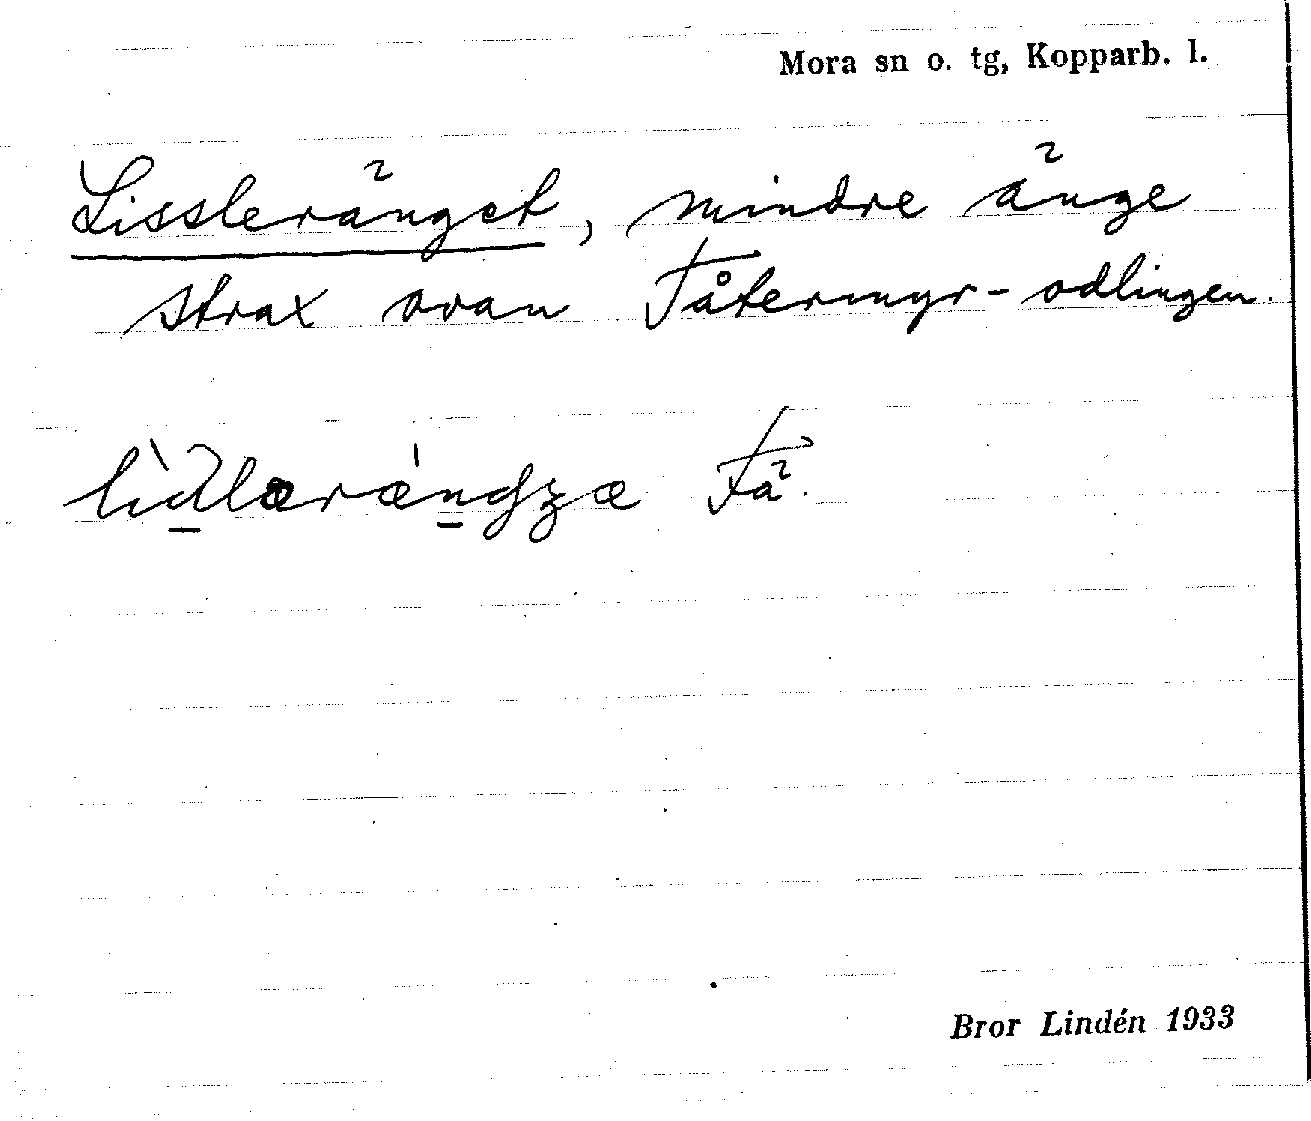 Mora sn o. tg, Kopparb. l.
Lissleränget, mindre änge
strax ovan Fåtermyr-odlingen.
lìdlærǽngʒæ Få.
Bror Lindén 1933